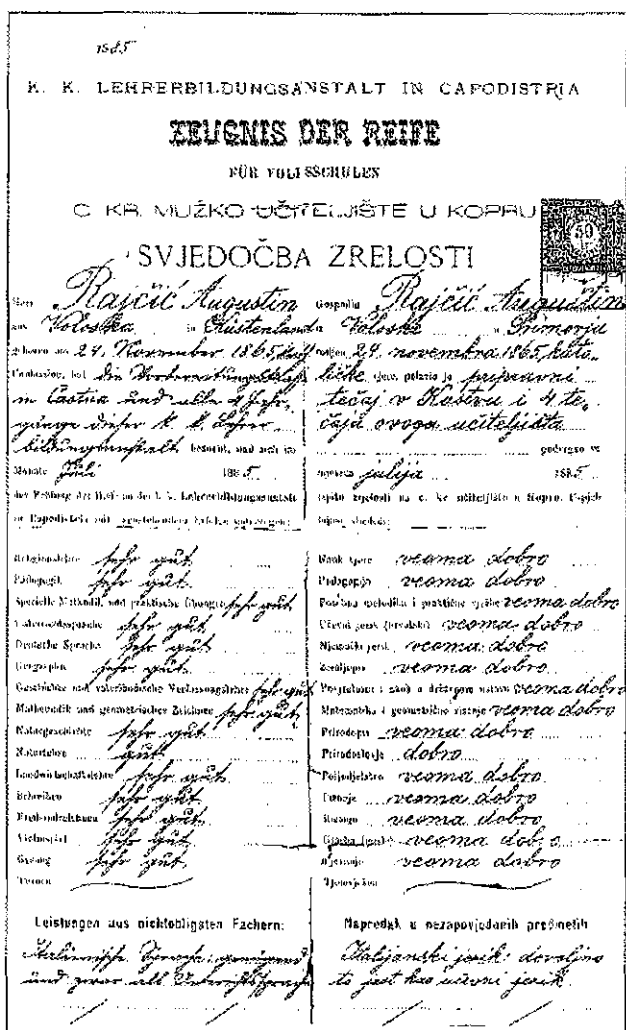 1885
K. K. LEHRERBILDUNGSANSTALT IN CAPODISTRIA
ZEUGNIS DER REIFE
FÜR VOLKSSCHULEN
C. KR. MUŽKO UČITELJIŠTE U KOPRU
50
SVJEDOČBA ZRELOSTI
Herr Rajčić Augustin
aus Voloska in Küstenland
geboren am 24. November 1865, kath.
Confession, hat die Vorbereitungsklasse
in Castua und alle 4 Jahr-
gänge dieser k. k. Lehrer-
bildungsanstalt besucht, und sich im
Monate Juli 1885
der Prüfung der Reife an der k. k. Lehrerbildungsanstalt
in Capodistria mit
Religionslehre sehr gut
Pädagogik sehr gut
Specielle Methodik und praktische Übungen sehr gut
Unterrichtssprache sehr gut
Deutsche Sprache sehr gut
Geographie sehr gut
Geschichte und vaterländische Verfassungslehre sehr gut
Mathematik und geometrisches Zeichnen sehr gut
Naturgeschichte sehr gut
Naturlehre gut
Landwirthschaftslehre sehr gut
Schreiben sehr gut
Freihandzeichnen sehr gut
Violinspiel sehr gut
Gesang sehr gut
Turnen
Leistungen aus nichtobligaten Fächern:
Italienische Sprache: genügend
und zwar als Unterrichtssprache
Gospodin Rajčić Auguštin
iz Voloske u Primorju
rodjen 24. novembra 1865, kato-
ličke vjere, polazio je pripravni
tečaj v Kastvu i 4 te-
čaja ovoga učiteljišta
podvrgao se
mjeseca julija 1885
ispitu zrelosti na c. kr. učiteljištu u Kopru. Uspjeh
Nauk vjere veoma dobro
Pedagogija veoma dobro
Posebna metodika i praktične vježbe veoma dobro
Učevni jezik (hrvatski) veoma dobro
Njemački jezik veoma dobro
Zemljopis veoma dobro
Povjestnica i nauk o državnom ustavu veoma dobro
Matematika i geometrično risanje veoma dobro
Prirodopis veoma dobro
Prirodoslovje dobro
Poljodjelstvo veoma dobro
Pisanje veoma dobro
Risanje veoma dobro
Glasba veoma dobro
Pjevanje veoma dobro
Napredak u nezapovjedanih predmetih
Italijanski jezik: dovoljno
to jest kao učevni jezik